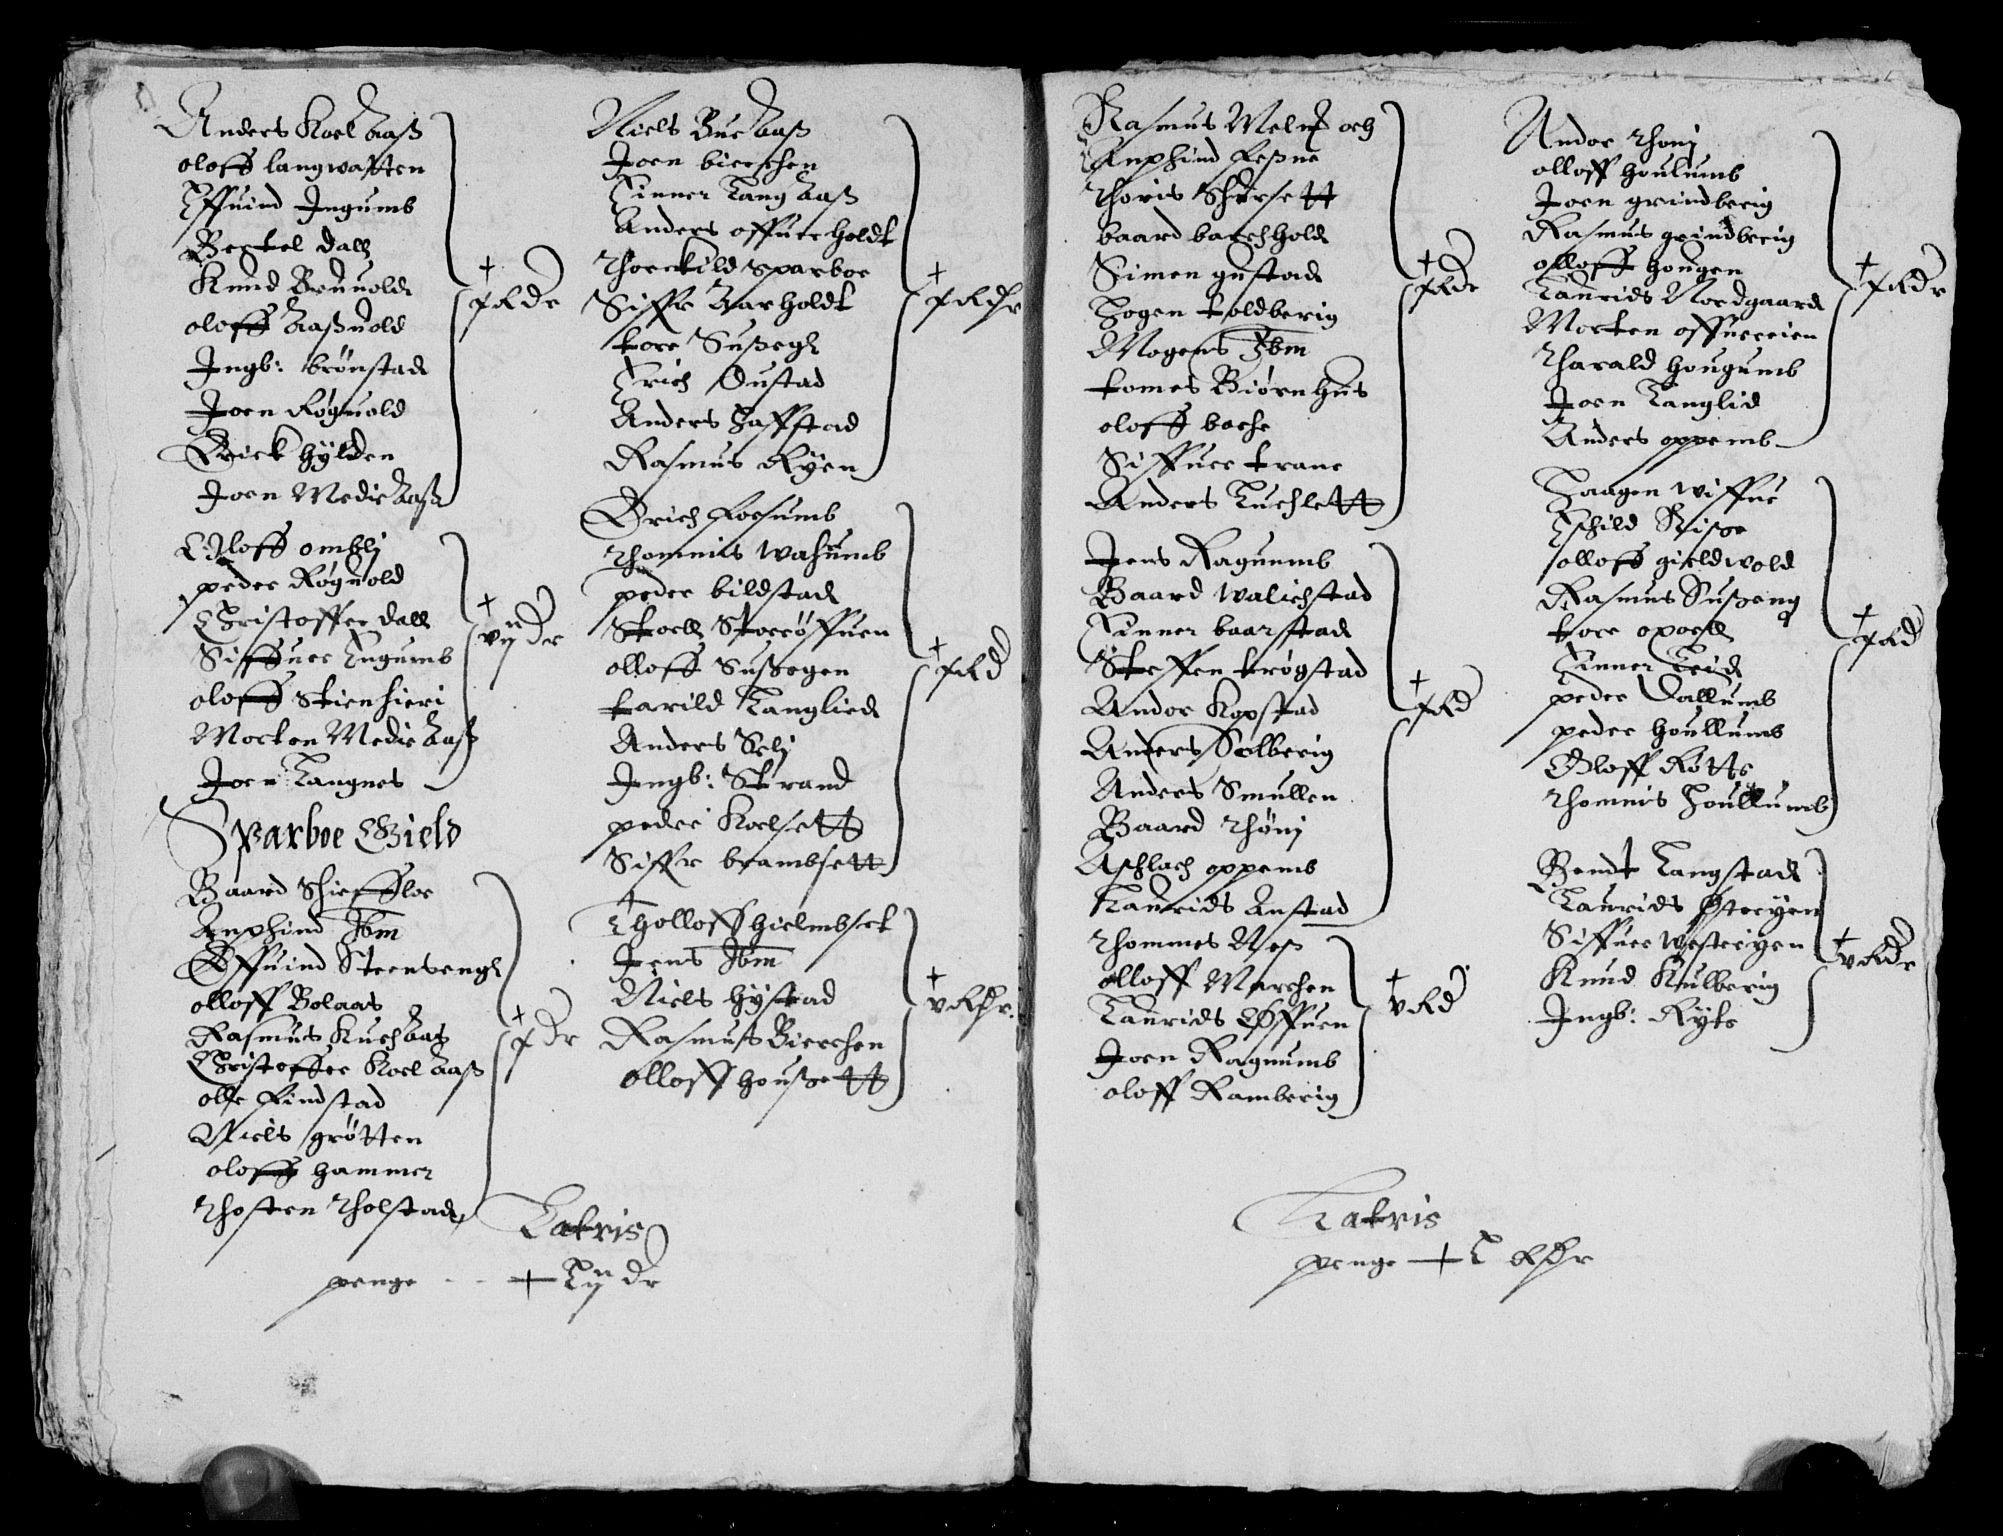 Anders Koelaaß
oloff langwatten
Effuind Ingumb
Bertel Dall
Knud Bruuold
oloff aaßuold
Ingb: brønstad
Joen Røguold
Erick hylden
Joen Medieaaß
+ x Rdr
Olloff ombli
peder Røguold
Christoffer Dall
Siffuer Ingumb
oloff Stienhieri
Morten Medieaaß
Joen Langnes
+ vij dr
Sparboe Gield
Baard Schiefloe
Anphind Ibm
Effuind Steensengh
olloff Bolaas
Rasmus Kuchaas
Christoffer Koelaaß
olle Findstad
Niels grøtten
oloff hammer
Thosten Tholstad
+ x dr
Niels Bueaaß
Joen bierchen
Einner Langaaß
Anders offuerholdt
Thorckild Sparboe
Siffr Aarholdt
tore Sußegh
Erich Dustad
Anders Haffstad
Rasmus Ryen
+ x Rdr
Erich Forsumb
Thomnis Wahumb
peder bildstad
Stoell Storøffuen
olloff Sußegen
tarild Langlied
Anders Seli
Ingb: Strand
peder Koelsett
Siffr brambsett
+ x Rd
Tholloff hielmbset
Jens Ibm
Niels hystad
Rasmus Bierchen
olloff houßett
+ v Rdr.
Latris
penge - - + L ij dr
Rasmus Melø och
Anphind Feßne
Thoris Schersett
baard barchhold
Simen gustad
Hogen toldberig
Mogens Ibm
tomes Biørnhus
oloff bache
Siffuer trane
Anders Luchlett
+ x Rdr
Jens Ragnumb
Baard Walichstad
Einner baarstad
Steffen trøgstad
Andor Kopstad
Anders Solberig
Anders Smullen
Baard Thøni
Aschlach oppemb
Laurids Anstad
+ x Rd
Thommes Neß
olloff Marchen
Laurids Øffuen
Joen Ragnumb
oloff Ramberig
+ v Rd
Andor Thoni
olloff houlumb
Joen grindberig
Rasmus grindberig
olloff hougen
Laurids Nordgaard
Morten offuereien
Tharald hougumb
Joen Langlid
Anders oppemb
+ x Rdr
Haagen Wiffue
Eschild Riße
olloff gieldwold
Rasmus Sußeng
tore opoeld
Einner Leid
peder Dallumb
peder houllumb
Oloff Rotte
Thomnis Houllumb
+ x Rd
Bendt Langstad
Laurids Østeryen
Siffuer Westeryen
Knud Kulberig
Ingb: Ryte
+ v Rdr
Latris
penge + L Rdr